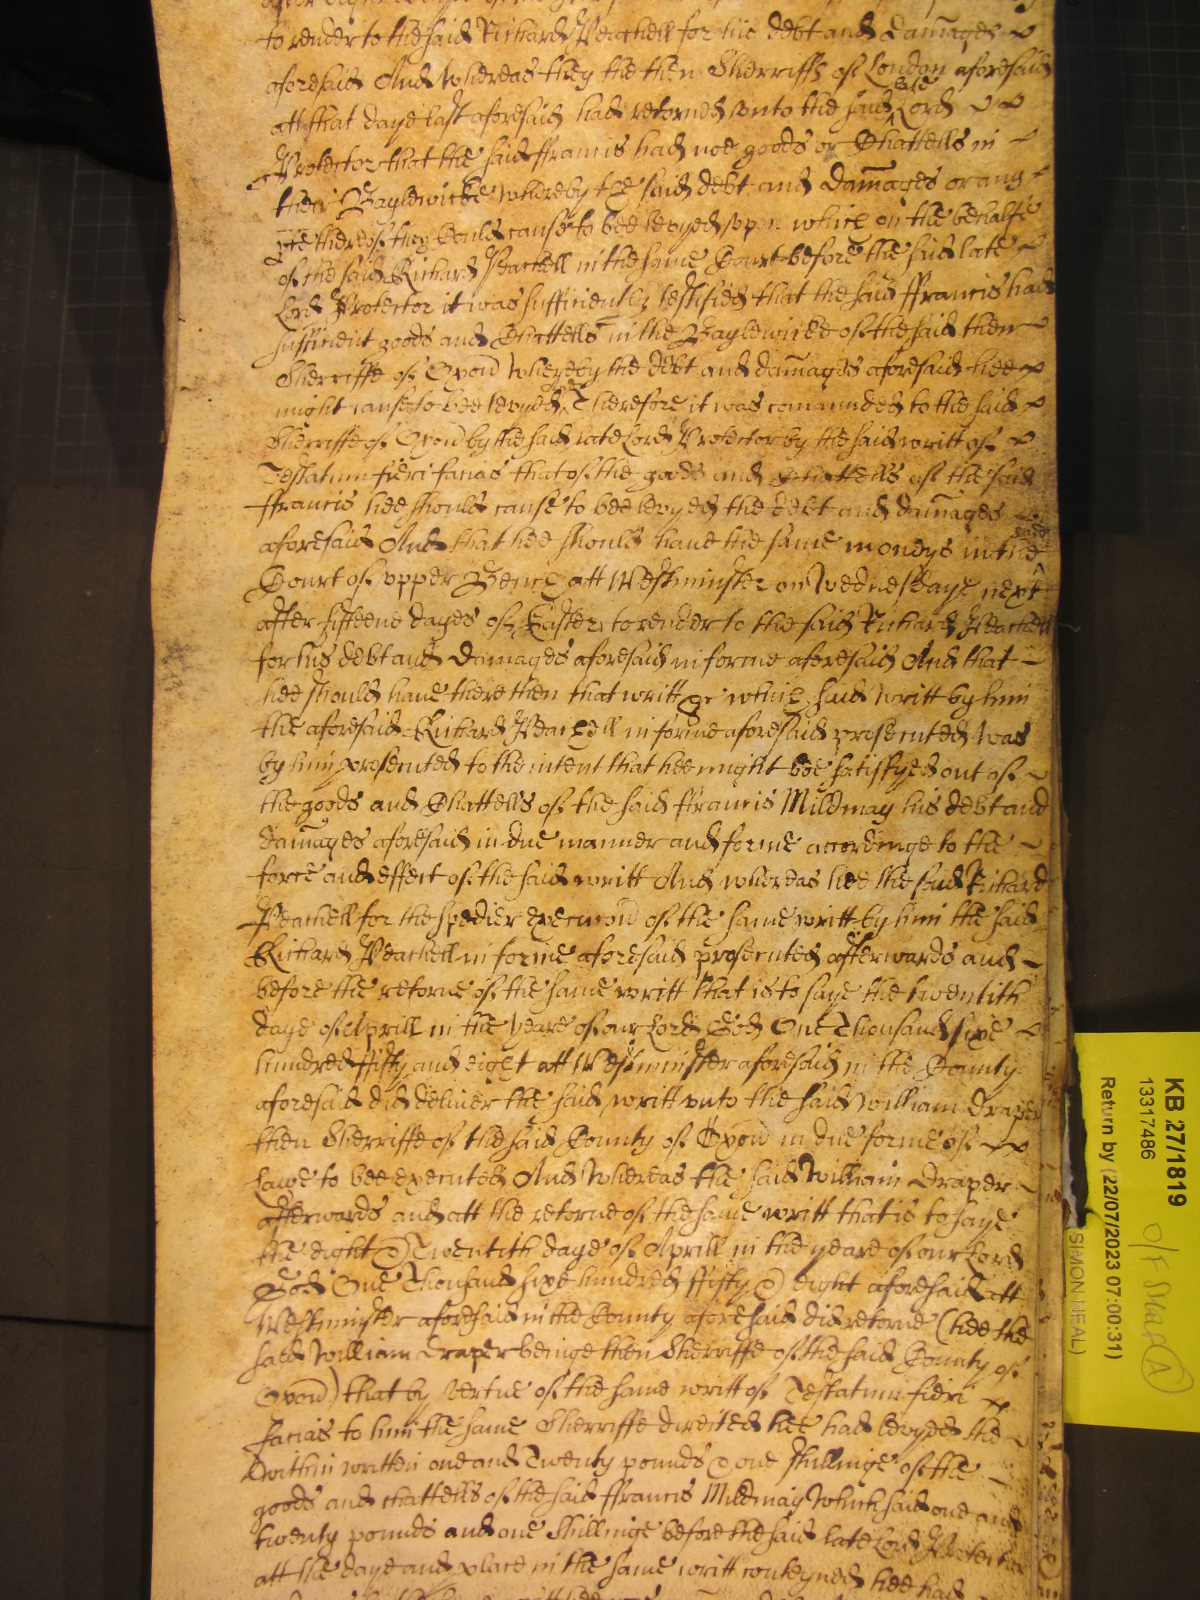 to render to the said Richard Peachell for his debt and damages
aforesaid And whereas they the then Sherriffs of London aforesaid
att that daye last aforesaid had retorned vnto the said late Lord
Protector that the said ffrancis had noe goods or Chattells in
their Baylewicke whereby the said debt and damages or any
thereof they could cause to bee levyed vpon which on the behalfe
of the said Richard Peachell in the same Court before the said late
Lord Protector it was sufficiently testified that the said ffrancis had
sufficient goods and Chattells in the Baylewicke of the said then
Sherriffe of Oxon whereby the debt and damages aforesaid hee
might cause to bee levyed Therefore it was comannded to the said
Sherriffe of Oxon by the said late Lord Protector by the said writt of
Testatum fieri facias that of the goods and Chattells of the said
ffrancis hee should cause to bee levyed the debt and damages
aforesaid And that hee should haue the same moneys in the said
Court of vpper Bench att Westminster on Wednesdaye next
after fifteene dayes of Easter to render to the said Richard Peachell
for his debt and damages aforesaid in forme aforesaid And that
hee should haue there then that writt &c which said writt by him
the aforesaid Richard Peachell in forme aforesaid prosecuted was
by him prosecuted to the intent that hee might bee satisfyed out of
the goods and Chattells of the said ffrancis Mildmay his debt and
damages aforesaid in due manner and forme accordinge to the
force and effect of the said writt And whereas hee the said Richard
Peachell for the spedier execucion of the same writt by him the said
Richard Peachell in forme aforesaid prosecuted afterwards and
before the retorne of the same writt that is to saye the twentith
daye of Aprill in the yeare of our Lord God One Thousand sixe
hundred ffifty and eight att Westminster aforesaid in the County
aforesaid did deliver the said writt vnto the said William Draper
then Sherriffe of the said County of Oxon in due forme of
Lawe to bee executed And Whereas the said William Draper
afterwards and att the retorne of the same writt that is to saye
the eight & Twentith daye of Aprill in the yeare of our Lord
God One Thousand sixe hundred ffifty & eight aforesaid att
Westminster aforesaid in the County aforesaid did retorne (hee the
said William Draper beinge then Sherriffe of the said County of
Oxon) that by vertue of the same writt of Testatum fieri
facias to him the same Sherriffe directed hee had levyed the
within written one and Twenty pounds & one shillinge of the
goods and chattells of the said ffrancis Mildmay Which said one and
twenty pounds and one Shillinge before the said late Lord Protector
att the daye and place in the same writt conteyned hee had
KB 27/1819
13317486
Return by (22/07/2023 07:00:31)
(SIMON NEAL)